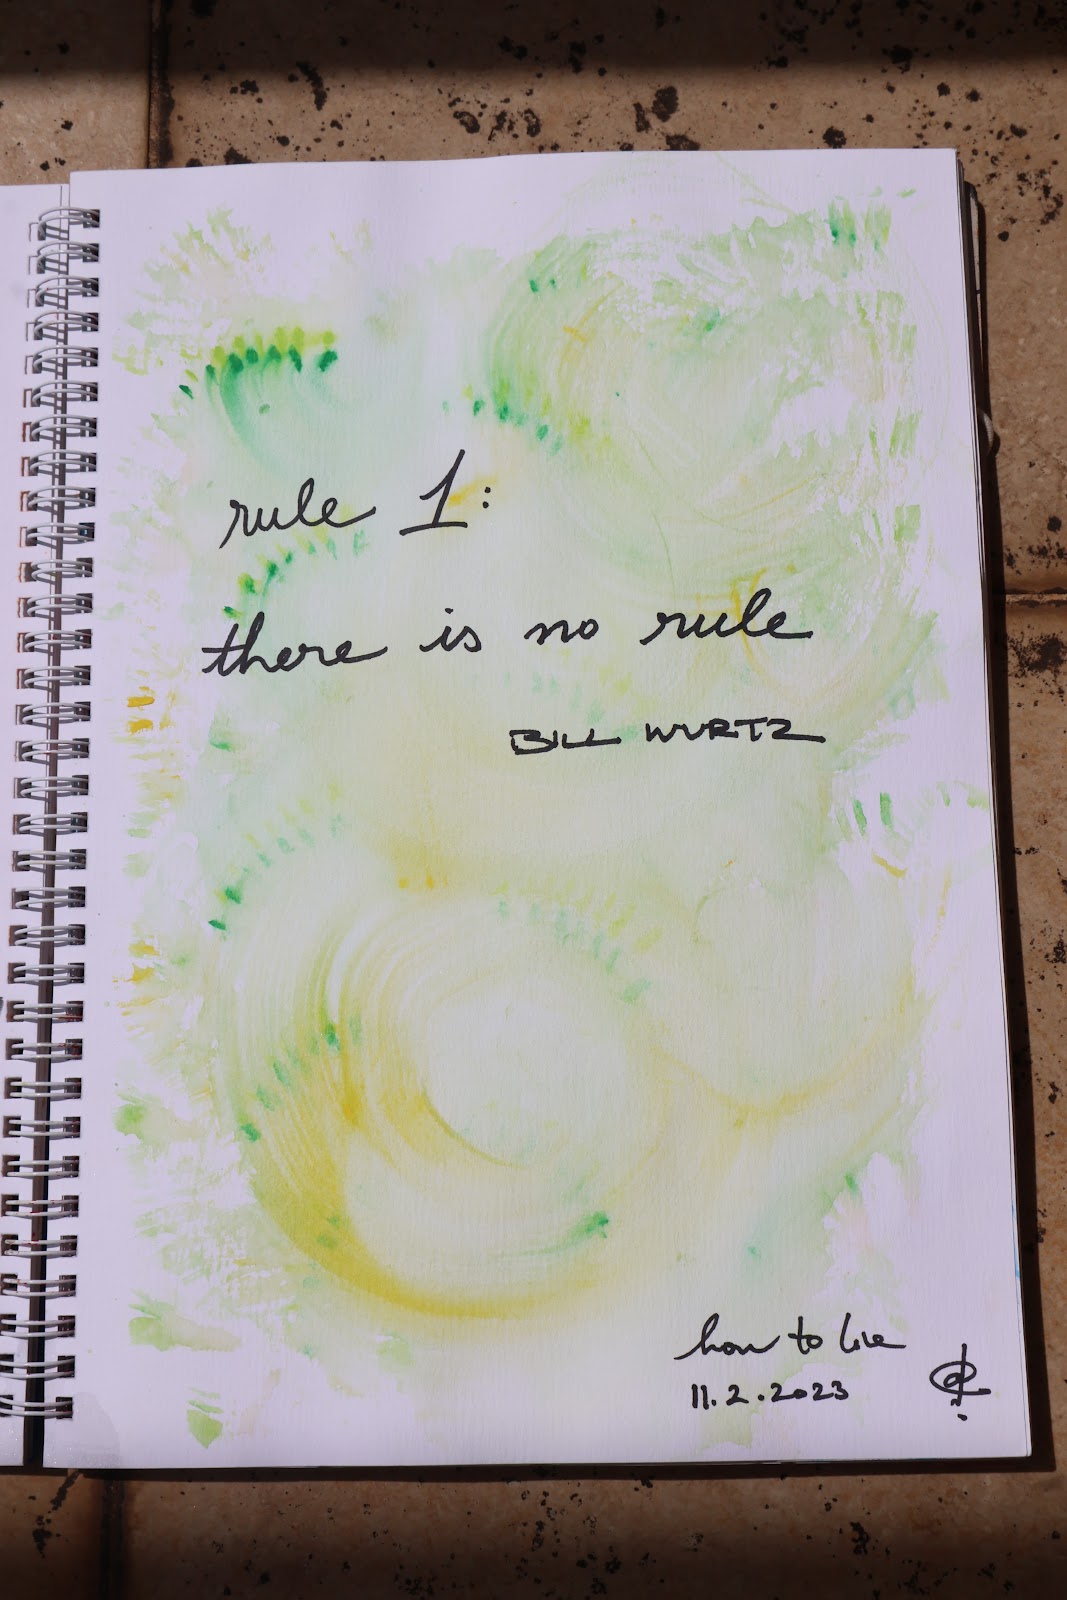 rule 1:
there is no rule
BILL WURTZ
how to live
11.2.2023